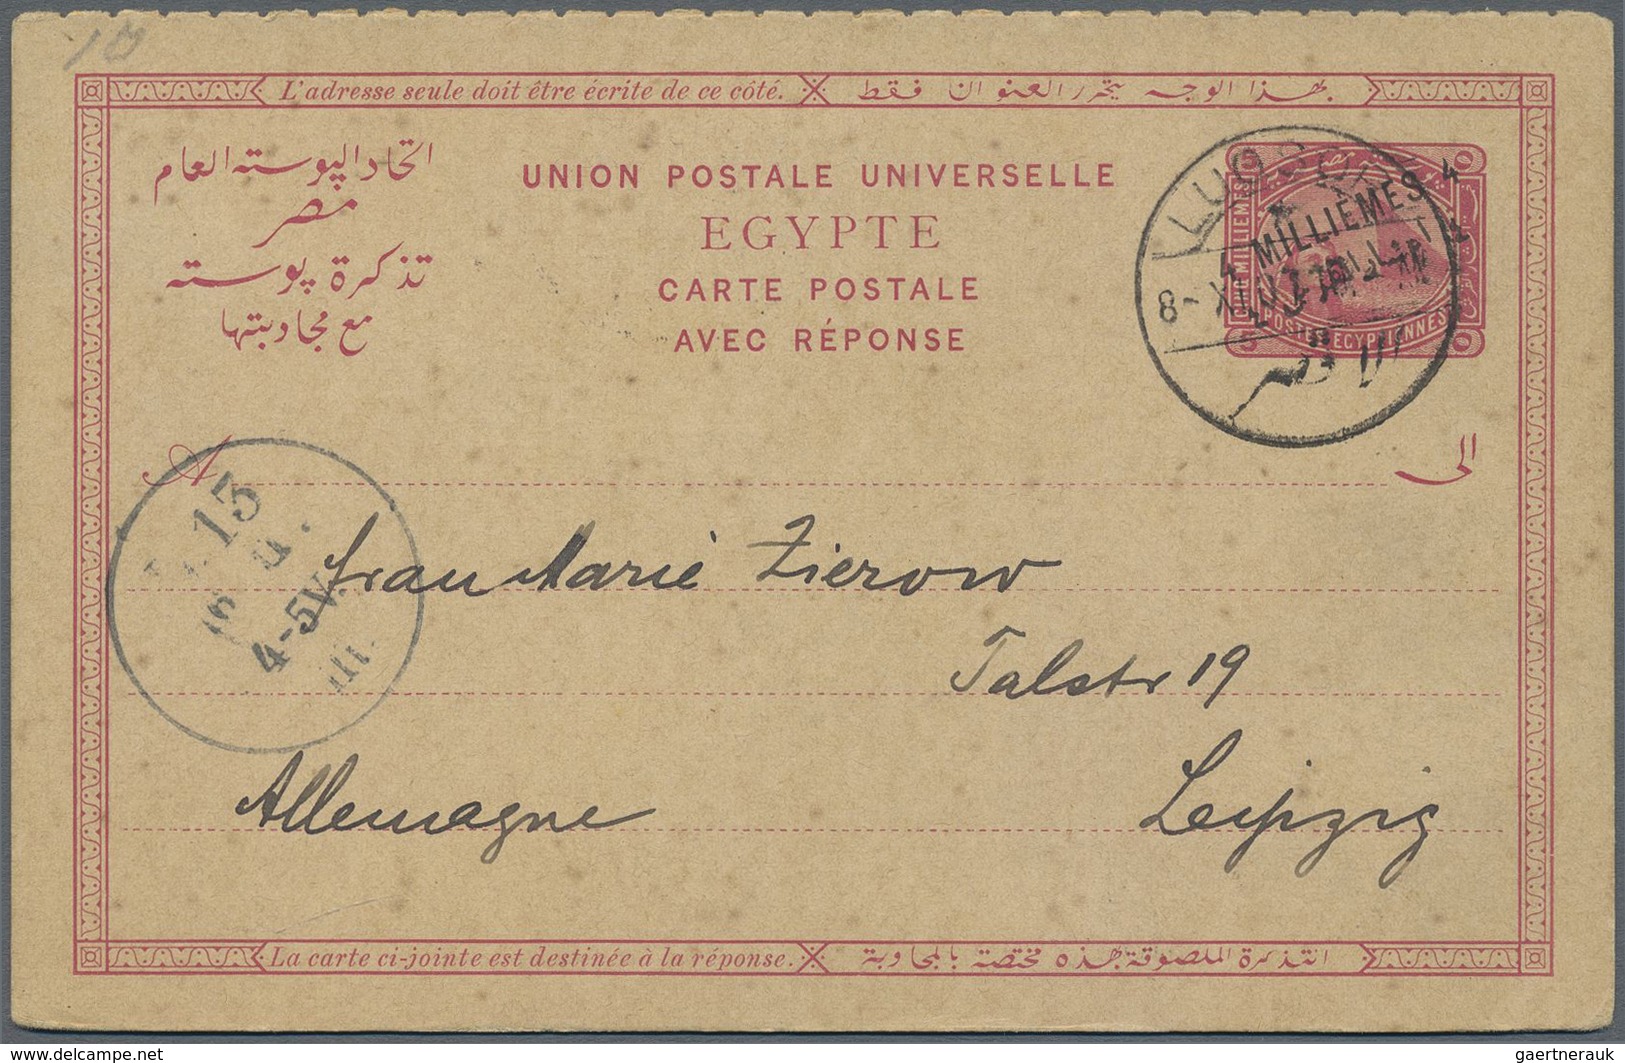 10
L'adresse seule doit être écrite de ce côté.
بهذا الوجه يتحرر العنوان فقط
اتحاد البوسته العام
مصر
تذكرة بوسته
مع مجاوبتها
UNION POSTALE UNIVERSELLE
EGYPTE
CARTE POSTALE
AVEC RÉPONSE
LUQSOR
4 MILLIÈMES 4
8- XI 07
الاقصر
MILLIEMES
POSTES EGYPTIENNES
A
الى
13
4-5V.
Frau Marie Zierow
Talstr 19
Allemagne
Leipzig
La carte ci-jointe est destinée à la réponse.
التذكرة الملصوقة بهذه مختصة بالمجاوبة
www.delcampe.net
gaertnerauk